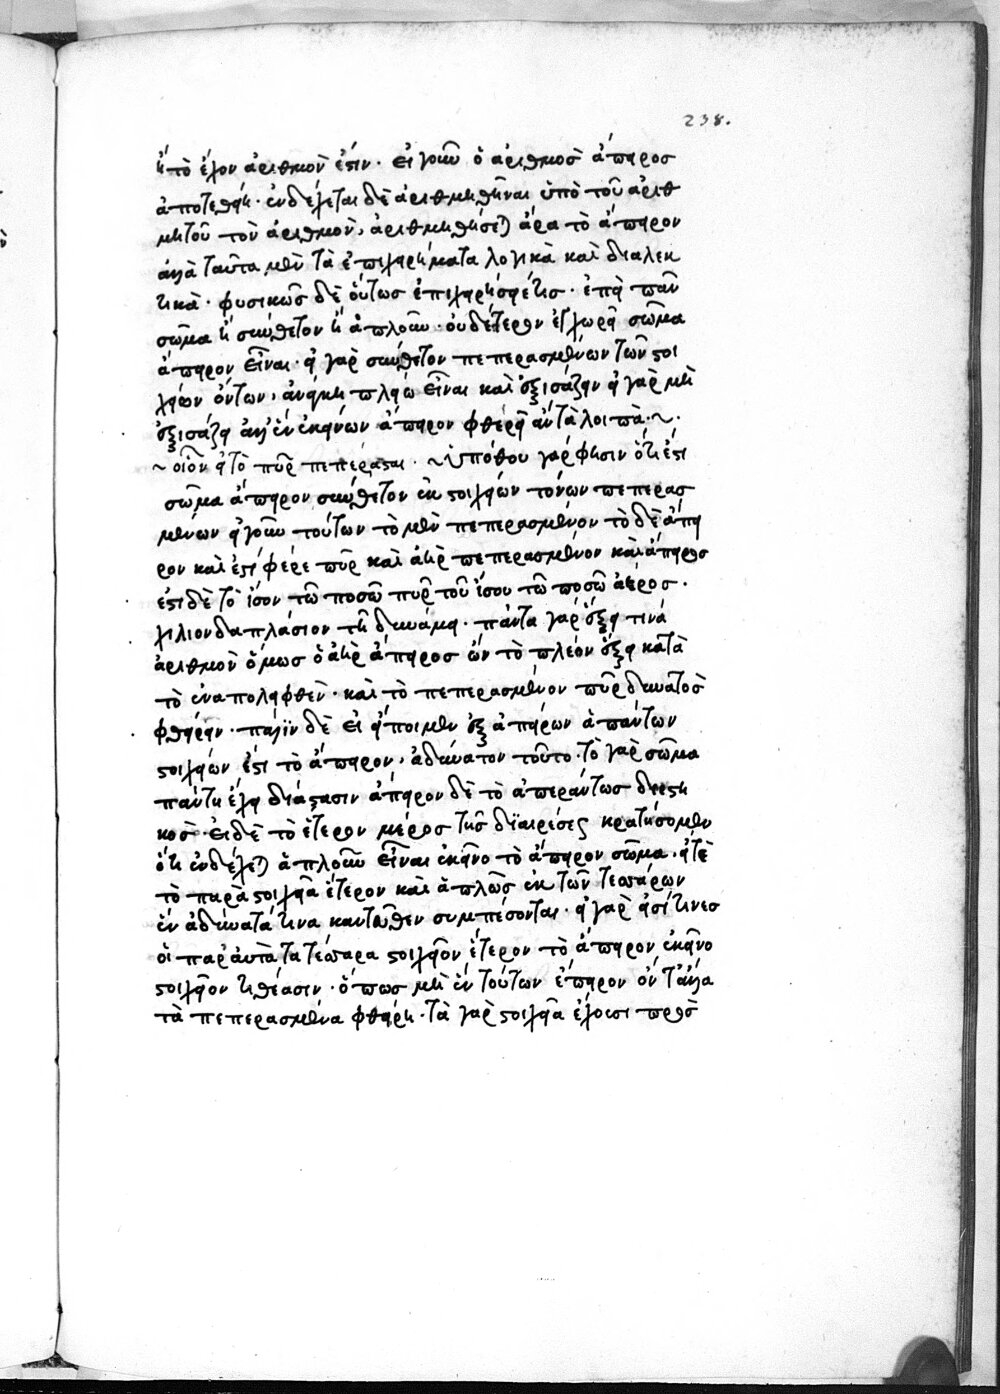 238.
ἢ τὸ ἔχον ἀριθμὸν ἐστιν · εἰ γοῦν ὁ ἀριθμὸσ ἄπειροσ
ἀποτεθῇ · ἐνδέχεται δὲ ἀριθμηθῆναι ὑπὸ τοῦ ἀριθ
μητοῦ τὸν ἀριθμὸν, ἀριθμηθήσεται ἄρα τὸ ἄπειρον
ἀλλὰ ταῦτα μὲν τὰ ἐπιχειρήματα λογικὰ καὶ διαλεκ
τικὰ · φυσικῶσ δὲ οὕτωσ ἐπιχειρήσει τισ · ἐπεὶ πᾶν
σῶμα ἢ σύνθετον ἢ ἁπλοῦν · οὐδέτερον ἐγχωρεῖ σῶμα
ἄπειρον εἶναι · εἰ γὰρ σύνθετον πεπερασμένων τῶν στοι
χείων ὄντων, ἀνάγκη πλείω εἶναι καὶ ἐξισάζειν εἰ γὰρ μὴ
ἐξισάζει ἀλλ' ἓν ἐκείνων ἄπειρον φθερεῖ ἂν τὰ λοιπὰ · ~ ·
~ οἷον εἰ τὸ πῦρ πεπέρασται · ~ Ὑπόθου γάρ φησιν ὅτι ἐστὶ
σῶμα ἄπειρον σύνθετον ἐκ στοιχείων τινων πεπερασ
μένων εἰ γοῦν τούτων τὸ μὲν πεπερασμένον τὸ δὲ ἄπει
ρον καὶ ἐστὶ φέρε πῦρ καὶ ἀὴρ πεπερασμένον καὶ ἄπειροσ
ἐστὶ δὲ τὸ ἴσον τῶ ποσῶ πῦρ τοῦ ἴσου τῶ ποσῶ ἀέροσ ·
χιλιονδαπλάσιον τῆ δυνάμει · πάντα γὰρ ἕξει τινά
ἀριθμὸν ὅμωσ ὁ ἀὴρ ἄπειροσ ὢν τὸ πλέον ἕξει κατὰ
τὸ ἐναπολειφθὲν · καὶ τὸ πεπερασμένον πῦρ δυνατὸσ
φθείρειν · πάλιν δὲ εἰ εἴποιμεν ἐξ ἀπείρων ἁπάντων
στοιχείων ἐστὶ τὸ ἄπειρον, ἀδύνατον τοῦτο · τὸ γὰρ σῶμα
πάντη ἔχει διάστασιν ἄπειρον δὲ τὸ ἀπεράντωσ διεστη
κοσ · εἰ δὲ τὸ ἕτερον μέροσ τῆσ διαιρέσεως κρατήσομεν
ὅτι ἐνδέχεται ἁπλοῦν εἶναι ἐκεῖνο τὸ ἄπειρον σῶμα · εἴτε
τὸ παρὰ στοιχεῖα ἕτερον καὶ ἁπλῶσ ἐκ τῶν τεσσάρων
ἓν ἀδύνατά τινα κἀντεῦθεν συμπέσονται · εἰ γὰρ εἰσί τινεσ
οἳ παρ' αὐτὰ τὰ τέσσαρα στοιχεῖον ἕτερον τὸ ἄπειρον ἐκεῖνο
στοιχεῖον τιθέασιν · ὅπωσ μὴ ἓν τούτων ἄπειρον ὂν τἄλλα
τὰ πεπερασμένα φθείρη · τὰ γὰρ στοιχεῖα ἔχουσι πρὸσ